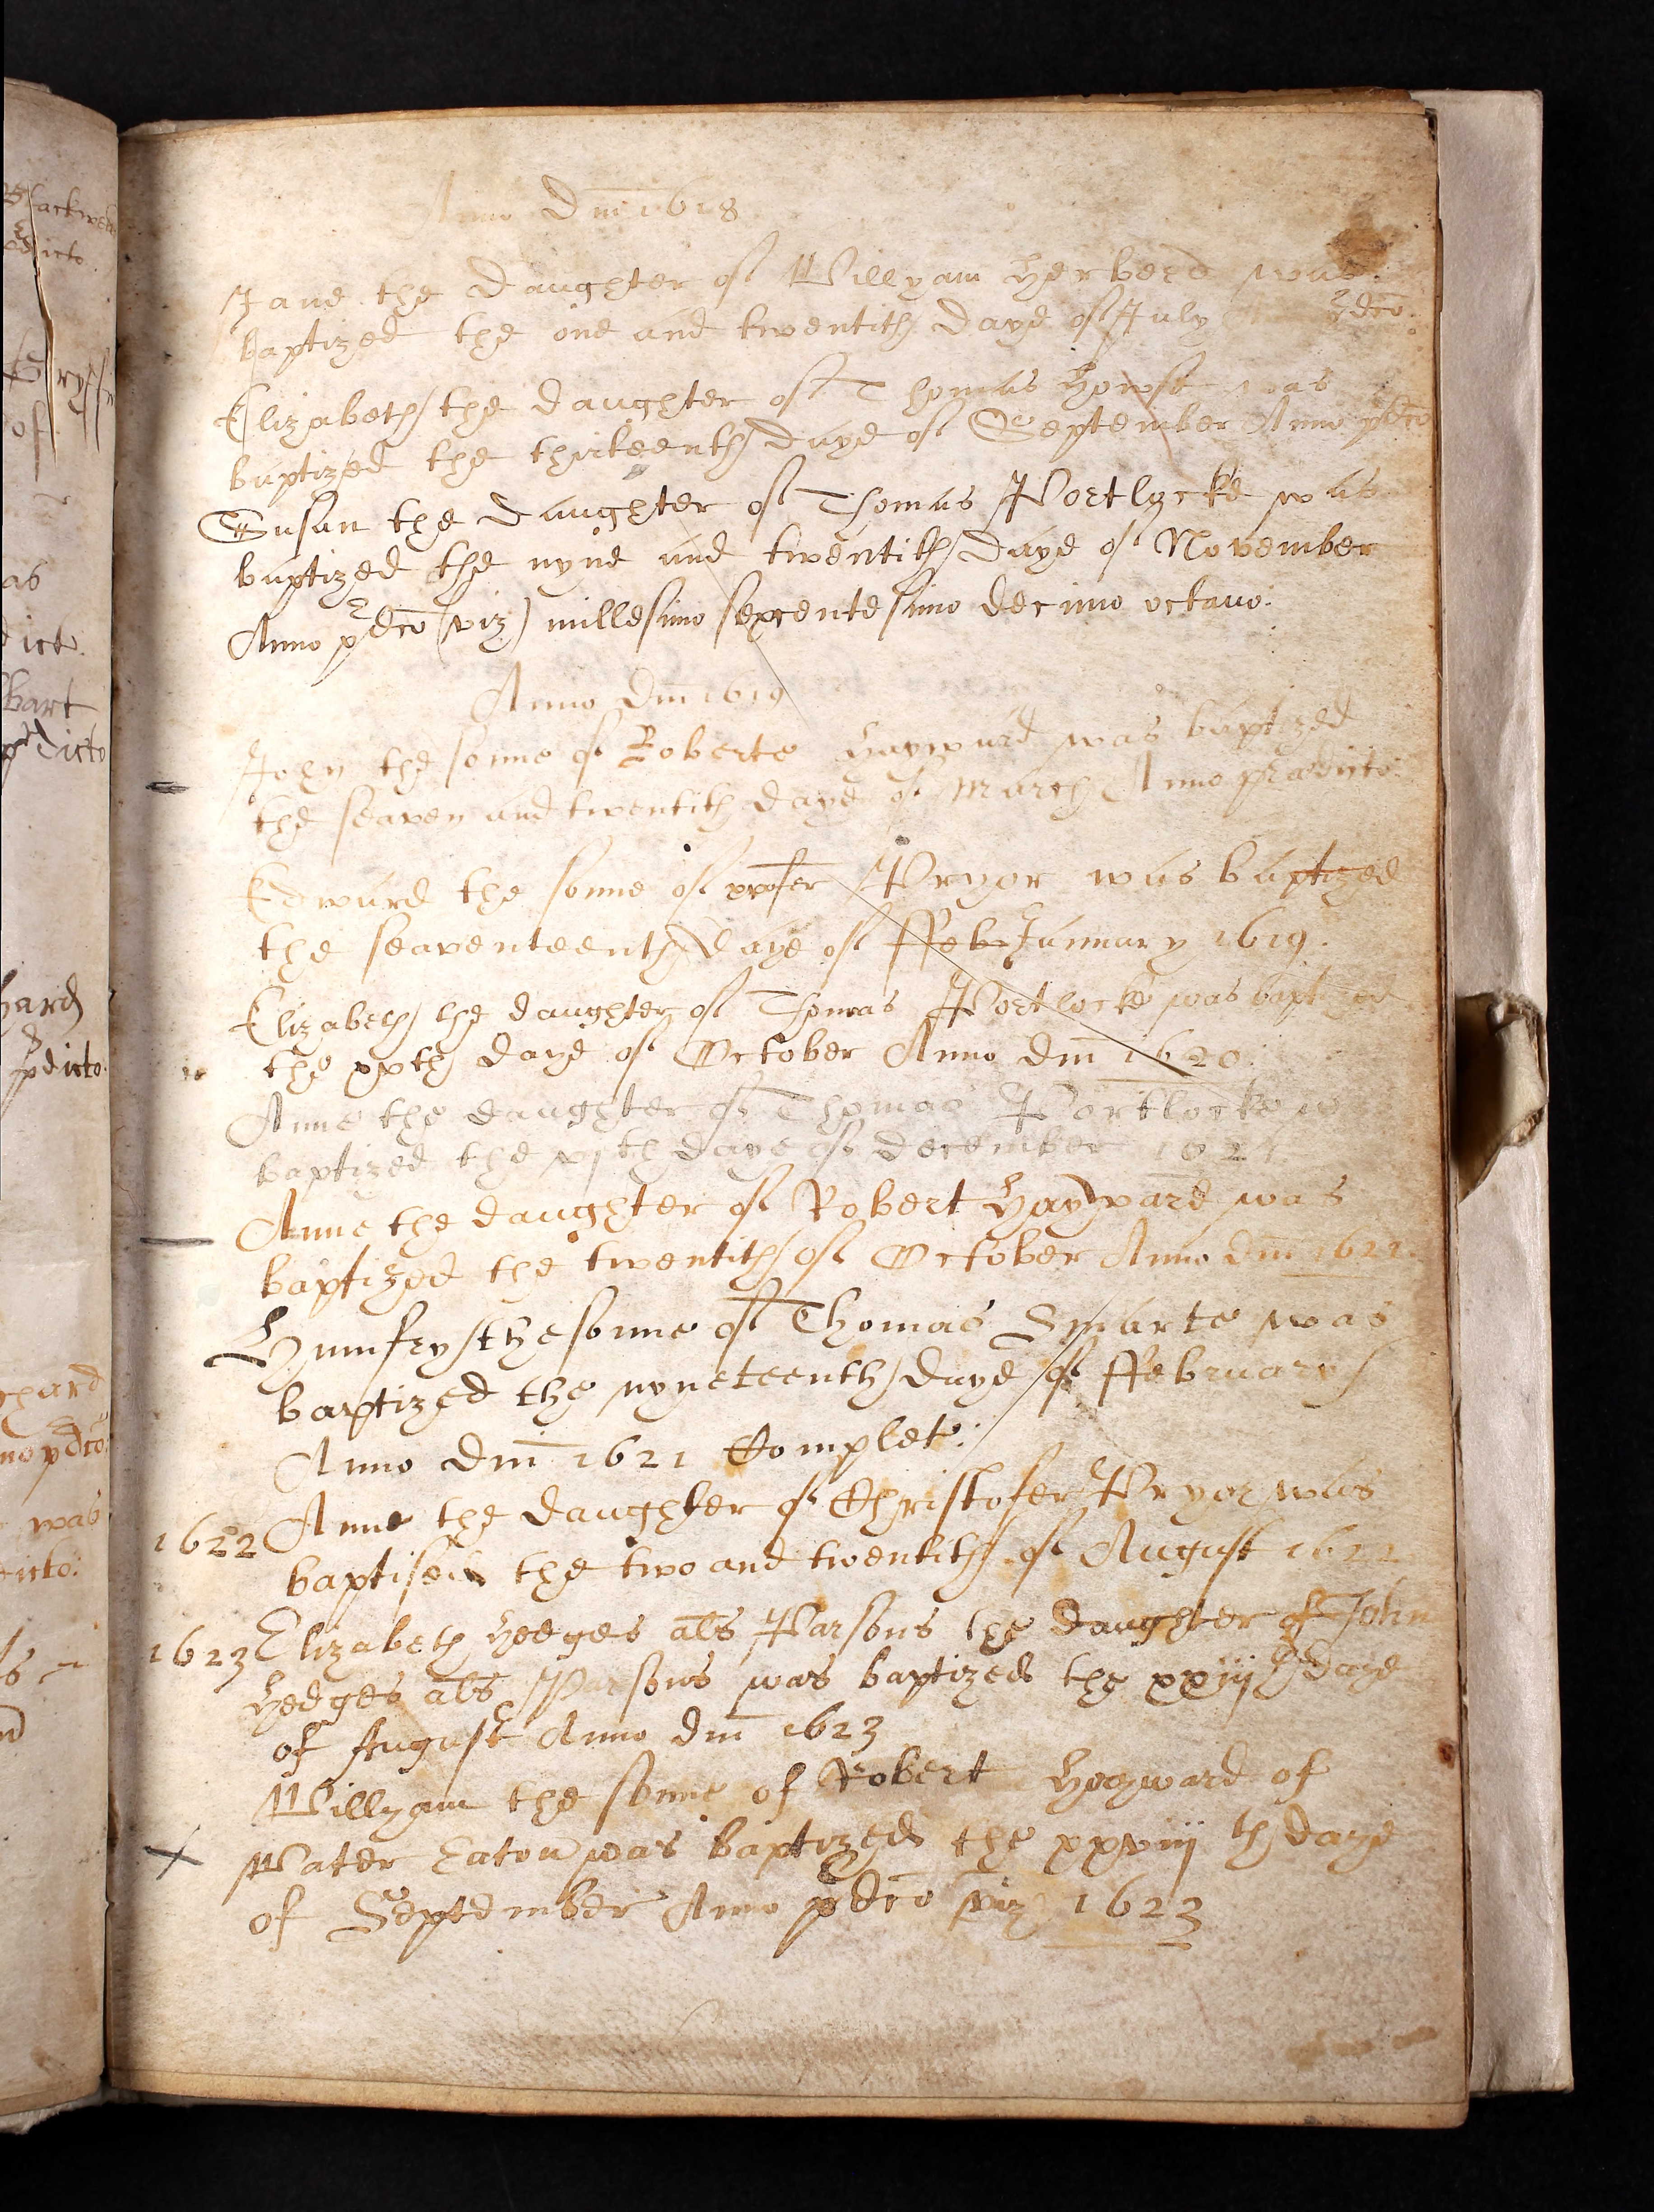 Anno Dm̄ 1618
Jane the daughter of Willyam Herberd was
baptized the one and twentith daye of July p̄dco.
Elizabeth the daughter of Thomas Howse was
baptized the thirteenth daye of September Anno p̄dco
Susan the daughter of Thomas Portlocke was
baptized the nyne and twentith daye of November
Anno p̄dco (viz) millesimo sexcentesimo decimo octavo.
Anno Dm̄ 1619
John the sonne of Roberte Haywurd was baptized
the seaven and twentith daye of March Anno praedicto.
Edward the sonne of xpofer Pryor was baptized
the seaventeenth daye of ffeb January 1619.
Elizabeth the daughter of Thomas Portlocke was baptized
the xxth daye of October Anno dm̄ 1620.
Anne the daughter of Thomas Portlocke
baptized the vjth daye of december
Anne the daughter of Robert Hayward was
baptized the twentith of October Anno dm̄ 1621.
Humfry the sonne of Thomas Smarte was
baptized the nyneteenth daye of ffebruary
Anno dm̄ 1621 Complet.
1622 Anne the daughter of Christofer Pryor was
baptised the two and twentith of August 1622
1623 Elizabeth Hedges als Parsons the daughter of John
Hedges als Parsons was baptized the xxiij th daye
of August Anno dm̄ 1623
Willyam the sonne of Robert Hayward of
Water Eaton was baptized the xxviij th daye
of September Anno p̄dco viz 1623